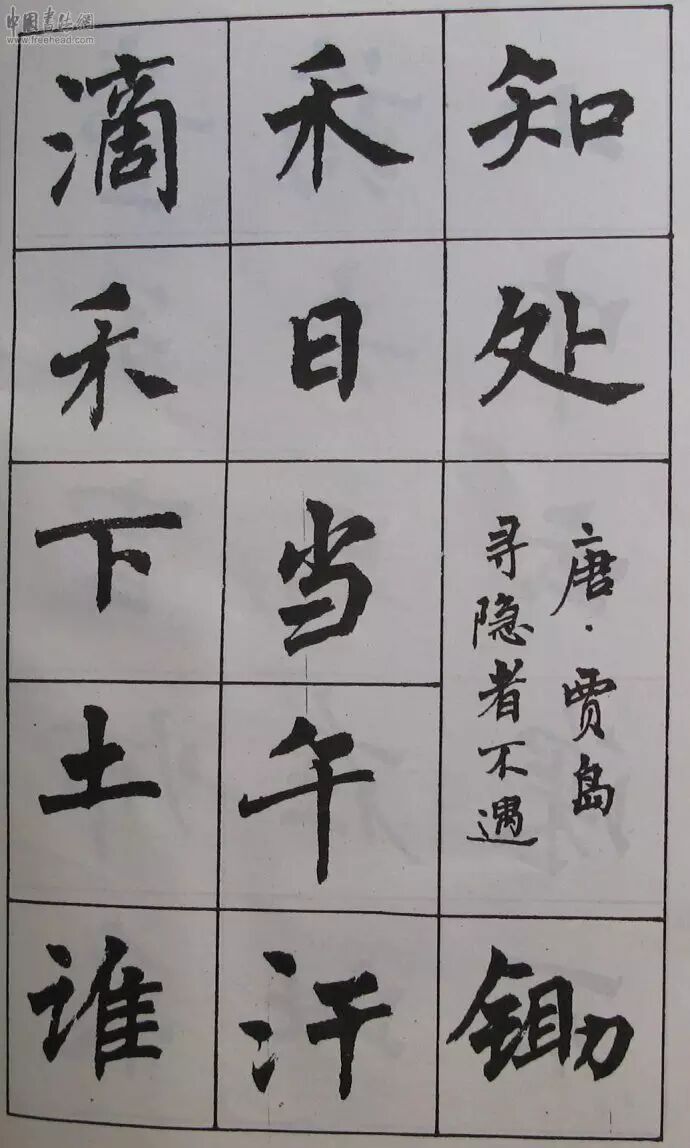 中国书法網
www.freehead.com
知处
唐·贾岛
寻隐者不遇
锄
禾日当午汗
滴禾下土谁